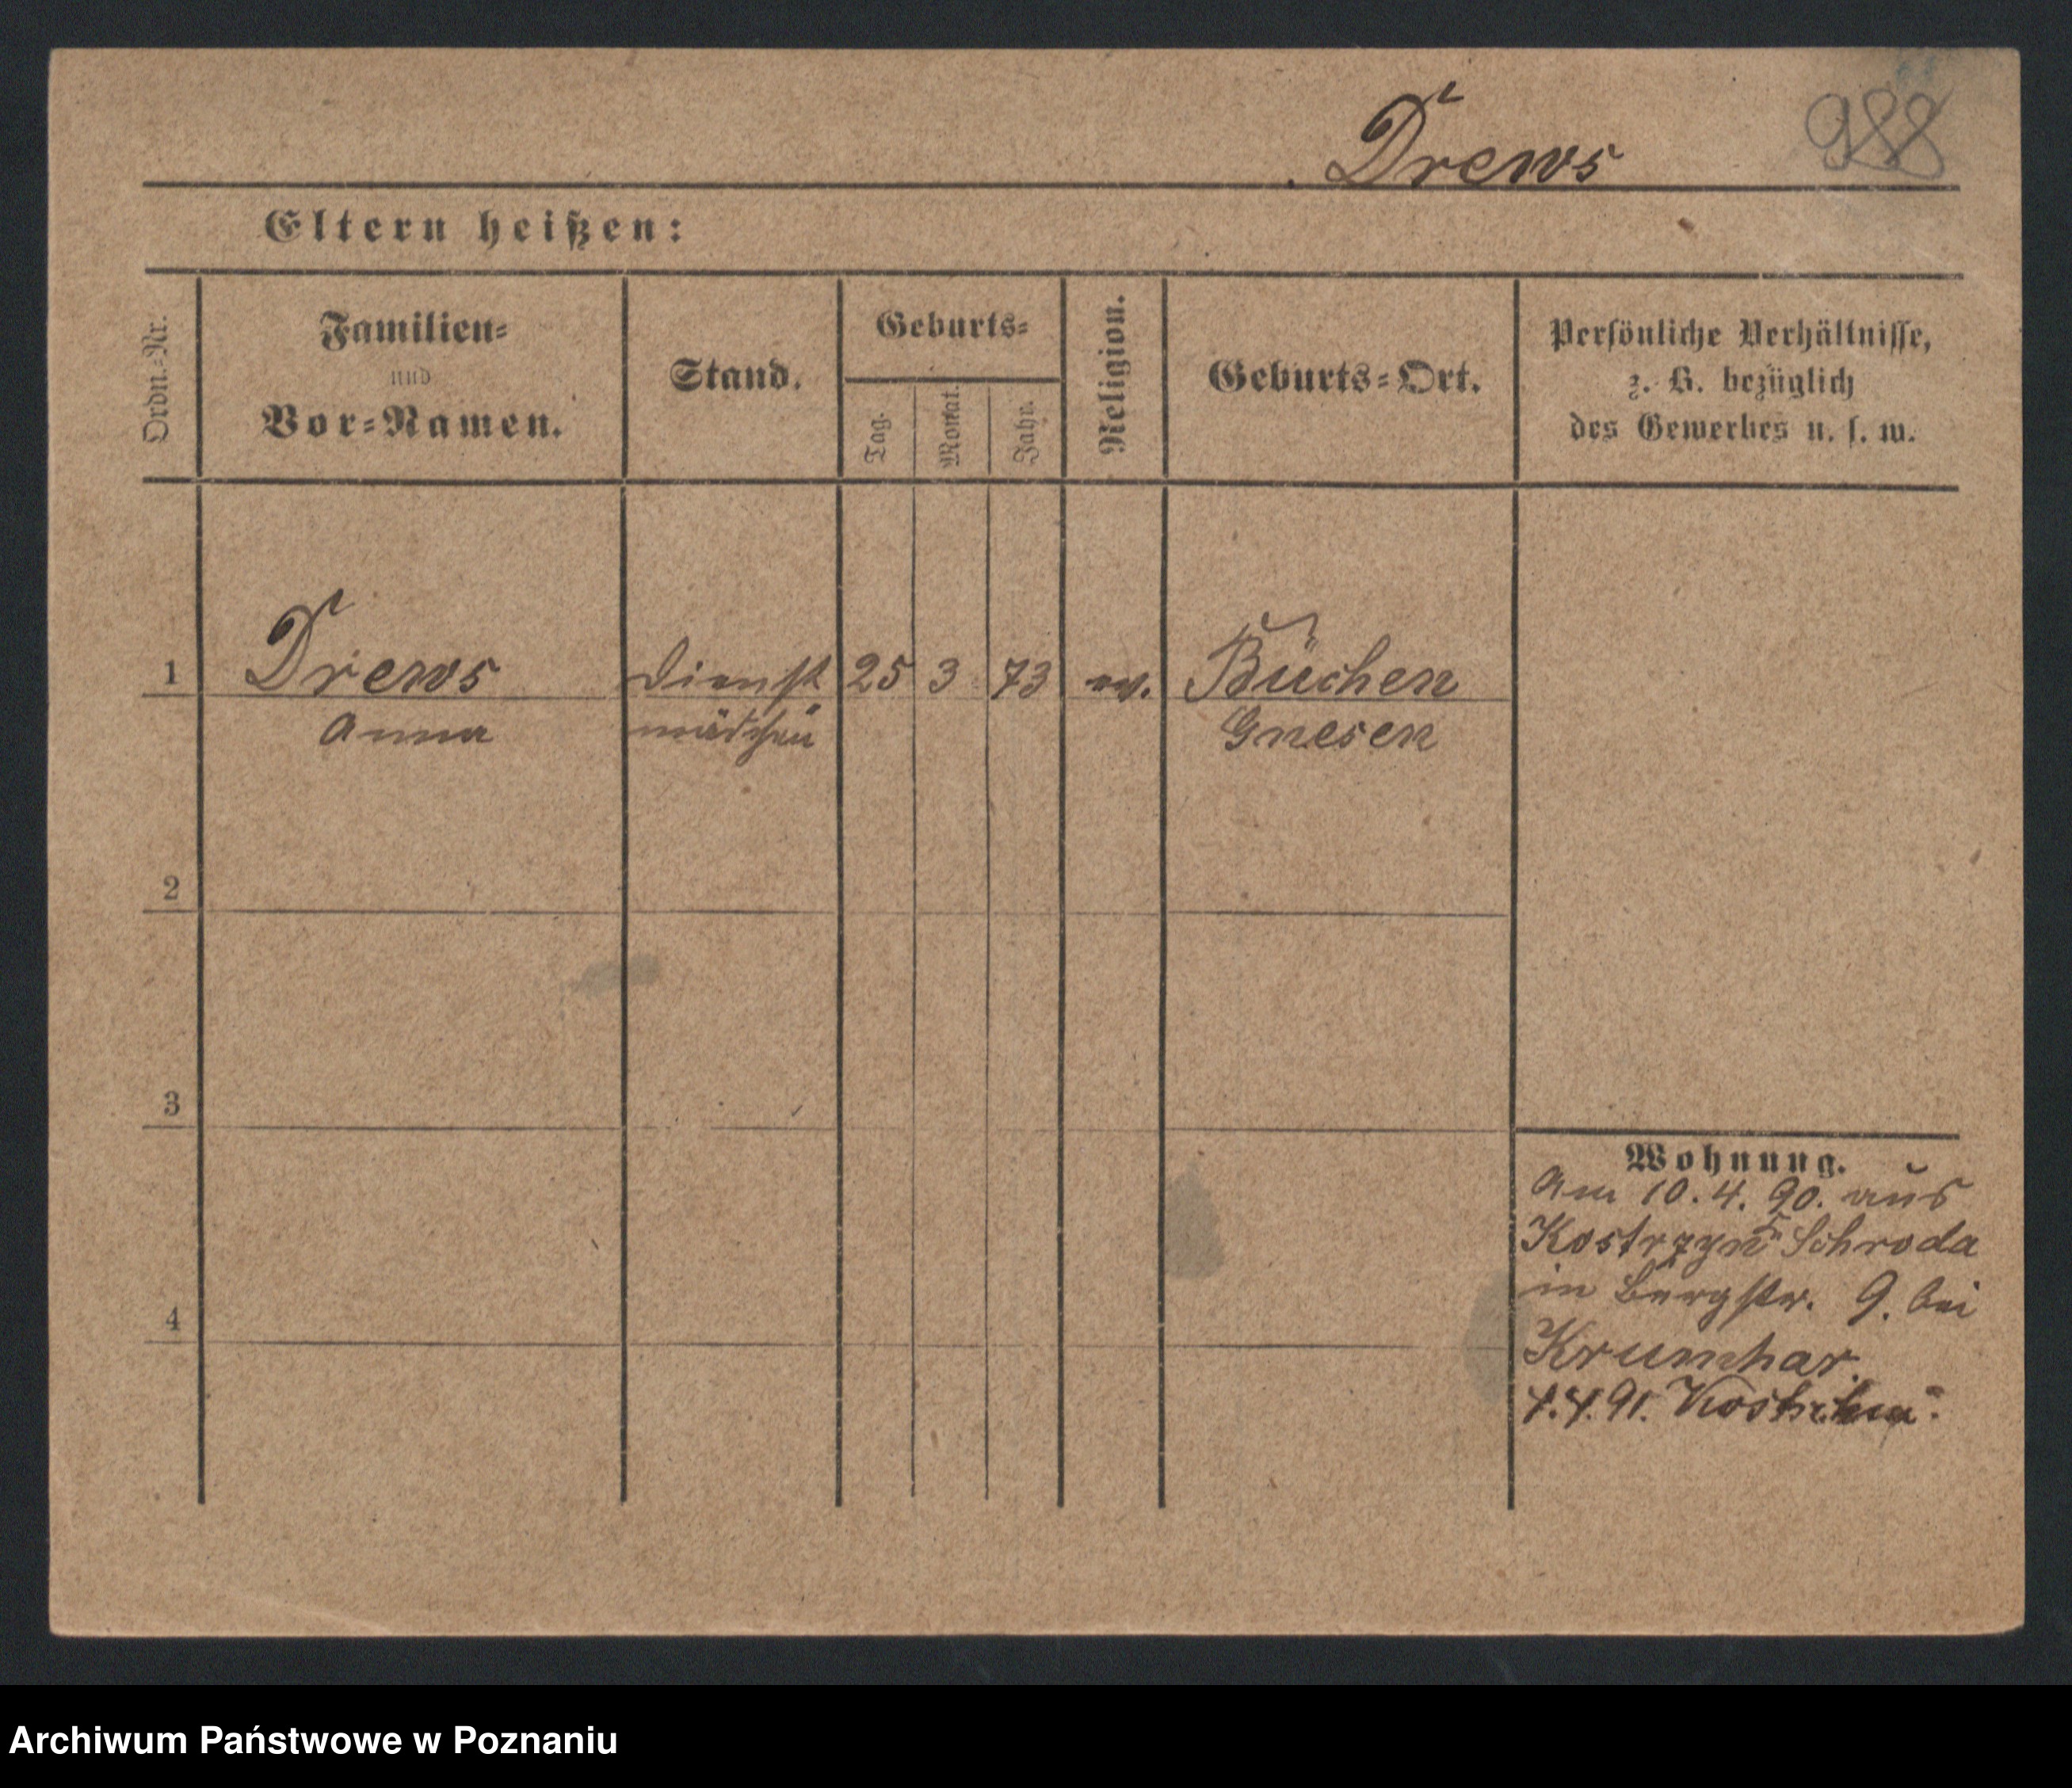 Drews
988
Eltern heißen:
Ordn.-Nr.
Familien-
und
Vor-Namen.
Stand.
Geburts-
Tag.
Monat.
Jahr.
Religion.
Geburts-Ort.
Persönliche Verhältnisse,
z. B. bezüglich
des Gewerbes u. s. w.
1 Drews Dienst 25 3 73 ev. Büchen
Anna mädchen Gnesen
2
3
4
Wohnung.
Am 10. 4. 90. aus
Kostrzyn Schroda
in Bergstr. 9. bei
Krumhar.
1.4.91.
Archiwum Państwowe w Poznaniu